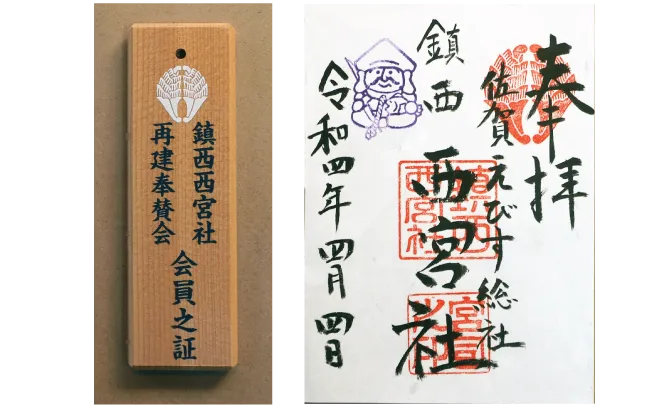 鎮西西宮社
再建奉賛会
会員之証
奉拝
佐賀えびす総社
鎮西
西宮社
令和四年四月四日
鎮西
西宮社